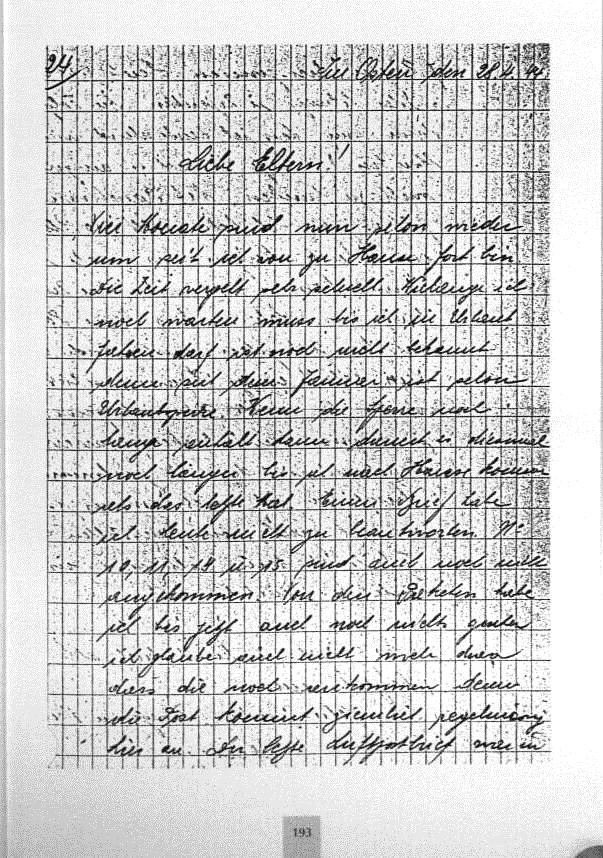 24.
Im Osten, den 28.4.44.
Liebe Eltern!
Vier Monate sind nun schon wieder
um seit ich von zu Hause fort bin
Die Zeit vergeht sehr schnell. Wielange ich
noch warten muss bis ich in Urlaub
fahren darf ist noch nicht bekannt
denn seit dem Januar ist schon
Urlaubssperre. Wenn die Sperre noch
lange anhält dann dauert es diesmal
noch länger bis ich nach Hause komme
als das letzte Mal. Einen Brief habe
ich heute nicht zu beantworten Nr.
10, 11, 14 u. 15, sind auch noch nicht
angekommen. Von den Paketen habe
ich bis jetzt auch noch nichts
ich glaube auch nicht mehr daran
dass die noch ankommen denn
die Post kommt ziemlich regelmässig
hier an. Der letzte Luftpostbrief war in
193